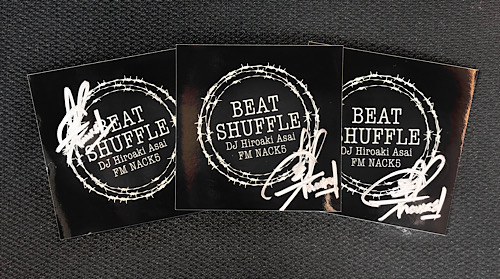 BEAT
SHUFFLE
DJ Hiroaki Asai
FM NACK5
BEAT
SHUFFLE
DJ Hiroaki Asai
FM NACK5
BEAT
SHUFFLE
DJ Hiroaki Asai
FM NACK5